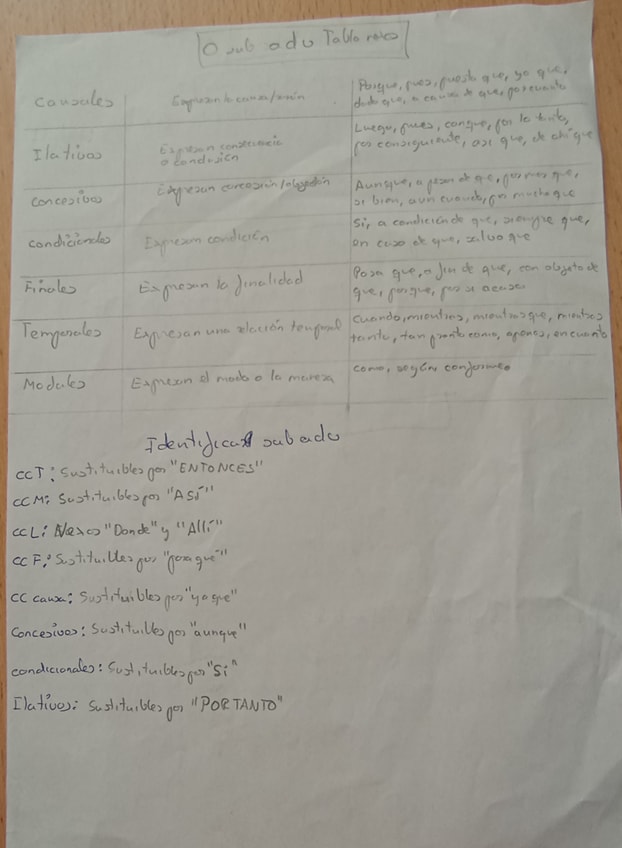 O sub adv Tabla nexos
Causales
Expresan la causa/razón
Porque, pues, puesto que, ya que,
dado que, a causa de que, por cuanto
Ilativas
Expresan consecuencia
o conclusión
Luego, pues, conque, por lo tanto,
por consiguiente, así que, de ahí que
Concesivas
Expresan concesión/objeción
Aunque, a pesar de que, por más que,
si bien, aun cuando, por mucho que
Condicionales
Expresan condición
Si, a condición de que, siempre que,
en caso de que, salvo que
Finales
Expresan la finalidad
Para que, a fin de que, con objeto de
que, porque, por si acaso
Temporales
Expresan una relación temporal
Cuando, mientras, mientras que, mientras
tanto, tan pronto como, apenas, en cuanto
Modales
Expresan el modo o la manera
como, según, conforme
Identificar sub adv
CCT: Sustituibles por "ENTONCES"
CCM: Sustituibles por "ASÍ"
CCL: Nexos "Donde" y "Allí"
CCF: Sustituibles por "para qué"
CC causa: Sustituibles por "ya que"
Concesivas: Sustituibles por "aunque"
condicionales: Sustituibles por "Si"
Ilativas: Sustituibles por "POR TANTO"